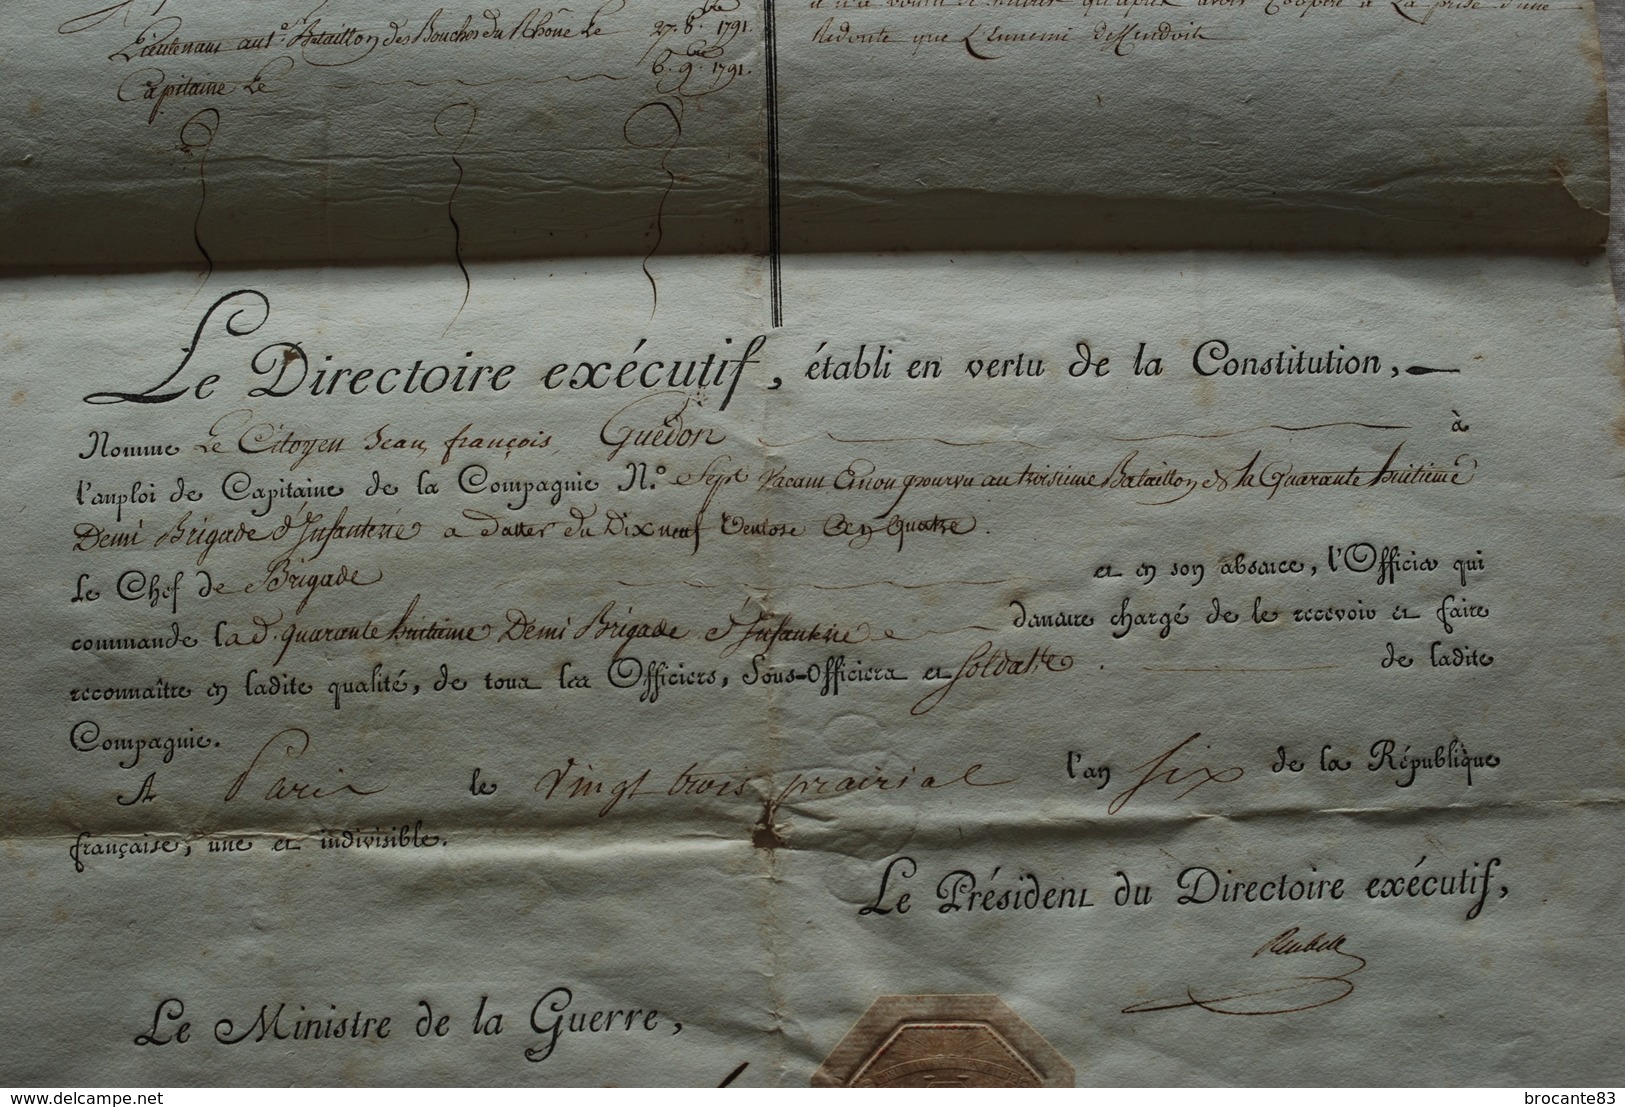 Lieutenant au 1.º Bataillon des Bouches du Rhône Le 27. 8.bre 1791.
Capitaine Le 6. 9.bre 1791.
qu'après avoir Coopéré à La prise d'une
Redoute que L'Ennemi deffendoit
Le Directoire exécutif, établi en vertu de la Constitution,
Nomme Le Citoyen Jean françois Guedon à
l'emploi de Capitaine de la Compagnie N.º Sept Vacant Et non pourvu au troisieme Bataillon de la Quarante huitieme
Demi Brigade d'Infanterie a datter du Dix neuf Ventose an quatre.
Le Chef de Brigade et en son absence, l'Officier qui
commande la d. quarante huitieme Demi Brigade d'Infanterie demeure chargé de le recevoir et faire
reconnaître en ladite qualité, de tous les Officiers, Sous-Officiers et Soldats. de ladite
Compagnie.
A Paris le Vingt trois prairial l'an Six de la République
française, une et indivisible.
Le Président du Directoire exécutif,
Reubell
Le Ministre de la Guerre,
delcampe.net
brocante83